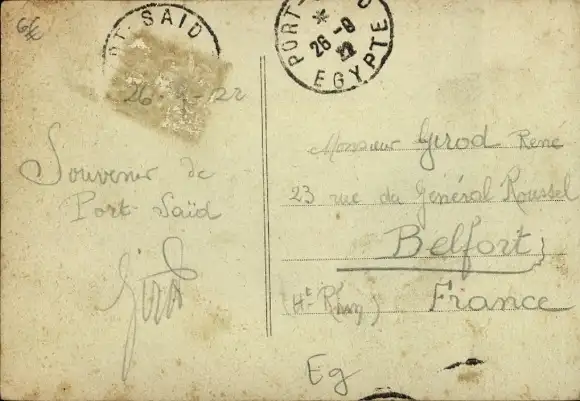 6€
PT. SAID
PORT-
26-9
22
EGYPTE
26-9-122
Souvenir de
Port-Saïd
Girod
Monsieur Girod René
23 rue du Général Roussel
Belfort
(Ht Rhin) France
Eg